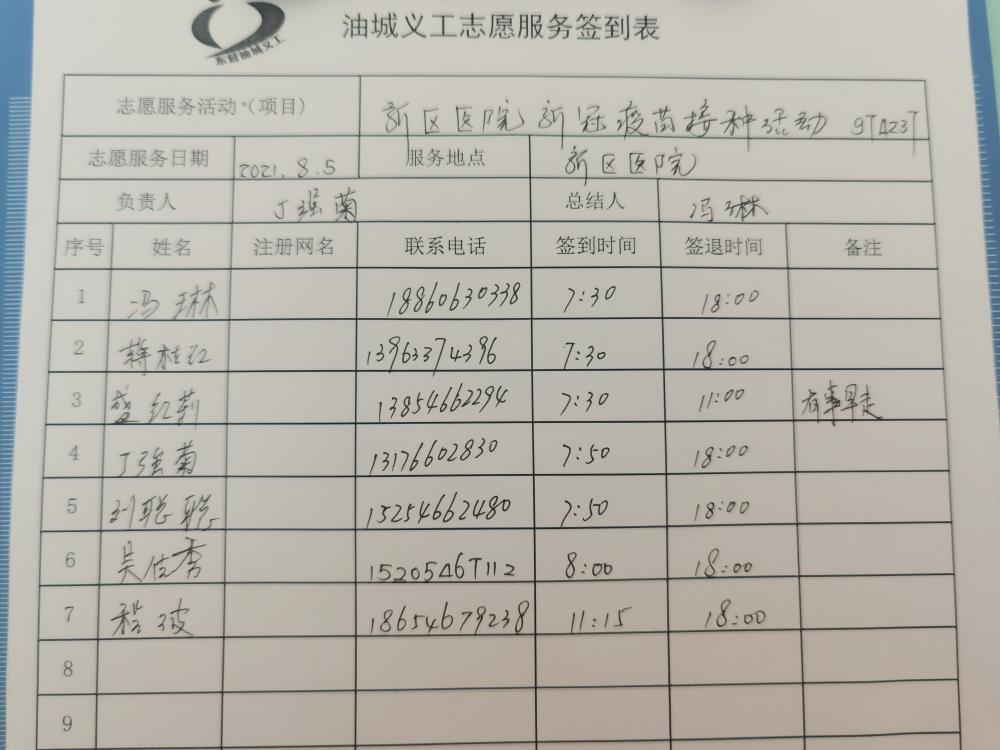 东营油城义工
油城义工志愿服务签到表
志愿服务活动(项目) 新区医院新冠疫苗接种活动
志愿服务日期 2021.8.5 服务地点 新区医院
负责人 丁强菊 总结人 冯琳
序号 姓名 注册网名 联系电话 签到时间 签退时间 备注
1 冯琳 18860630338 7:30 18:00
2 蒋桂红 13963374396 7:30 18:00
3 盛红莉 13854662294 7:30 11:00 有事早走
4 丁强菊 13176602830 7:50 18:00
5 刘聪聪 15254662480 7:50 18:00
6 吴佳秀 15205467112 8:00 18:00
7 程波 18654679238 11:15 18:00
8
9